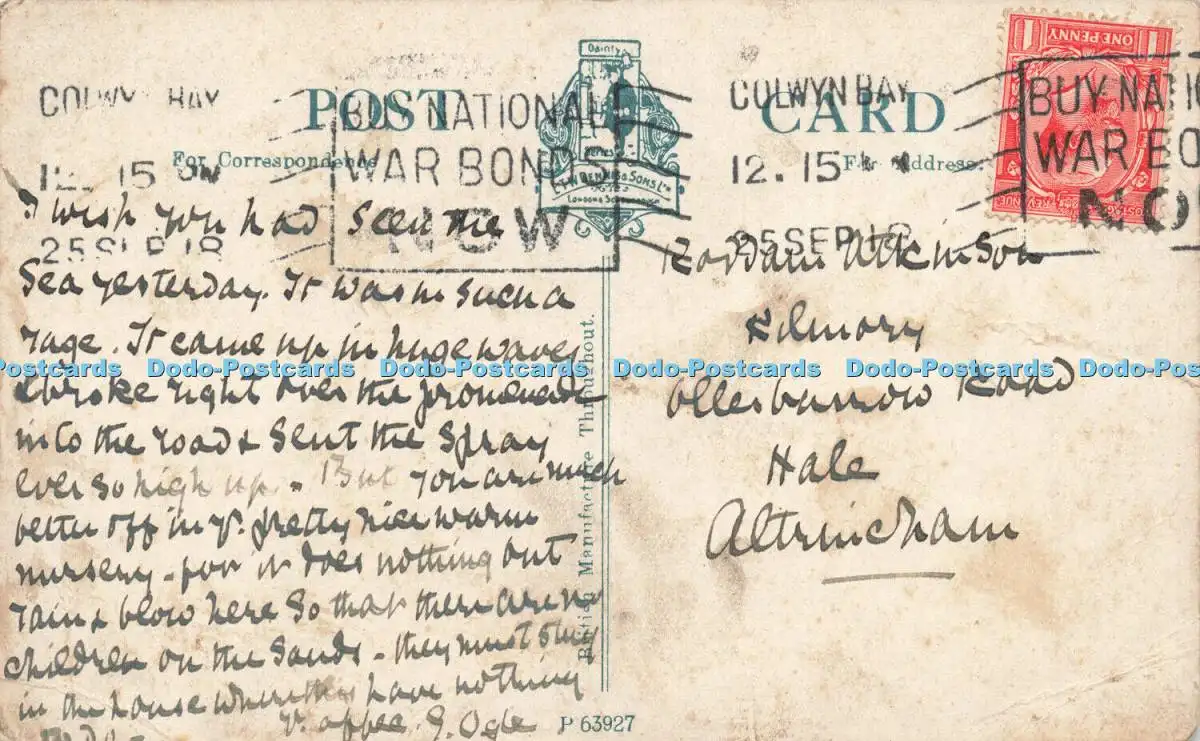 POST CARD
For Correspondence
For Address.
Dainty
E.T.W. DENNIS & SONS LTD
LONDON & SCARBOROUGH
COLWYN BAY
12. 15 PM
25 SEP 18
BUY NATIONAL
WAR BOND
NOW
COLWYN BAY
12. 15
25 SEP 18
BUY NATIO
WAR BO
NO
ONE PENNY
POSTAGE
REVENUE
I wish you had seen the
Sea yesterday. It was in such a
rage. It came up in huge waves
& broke right over the promenade
into the road & sent the spray
ever so high up. But you are much
better off in yr. pretty nice warm
nursery - for it does nothing but
rain & blow here so that there are no
children on the sands - they must stay
in the house where they have nothing
yr. affec. G. Ogle
Roddam Atkinson
Kilmory
Ollerbarrow Road
Hale
Altrincham
British Manufacture Throughout.
P 63927
Dodo-Postcards Dodo-Postcards Dodo-Postcards Dodo-Postcards Dodo-Postcards Dodo-Postcards